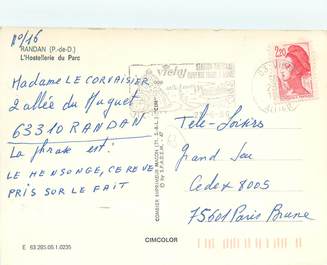 80/16
RANDAN (P.-de-D.)
L'Hostellerie du Parc
Madame LE CORVAISIER
2 allée du Muguet
63310 RANDAN
La phrase est:
LE MENSONGE, CE REVE
PRIS SUR LE FAIT
E 63.295.05.1.0235
COMBIER IMPRIMEUR MACON
CIMCOLOR
Vichy
2,20
Télé-Loisirs
Grand Jeu
Cedex 8005
75601 Paris Brune